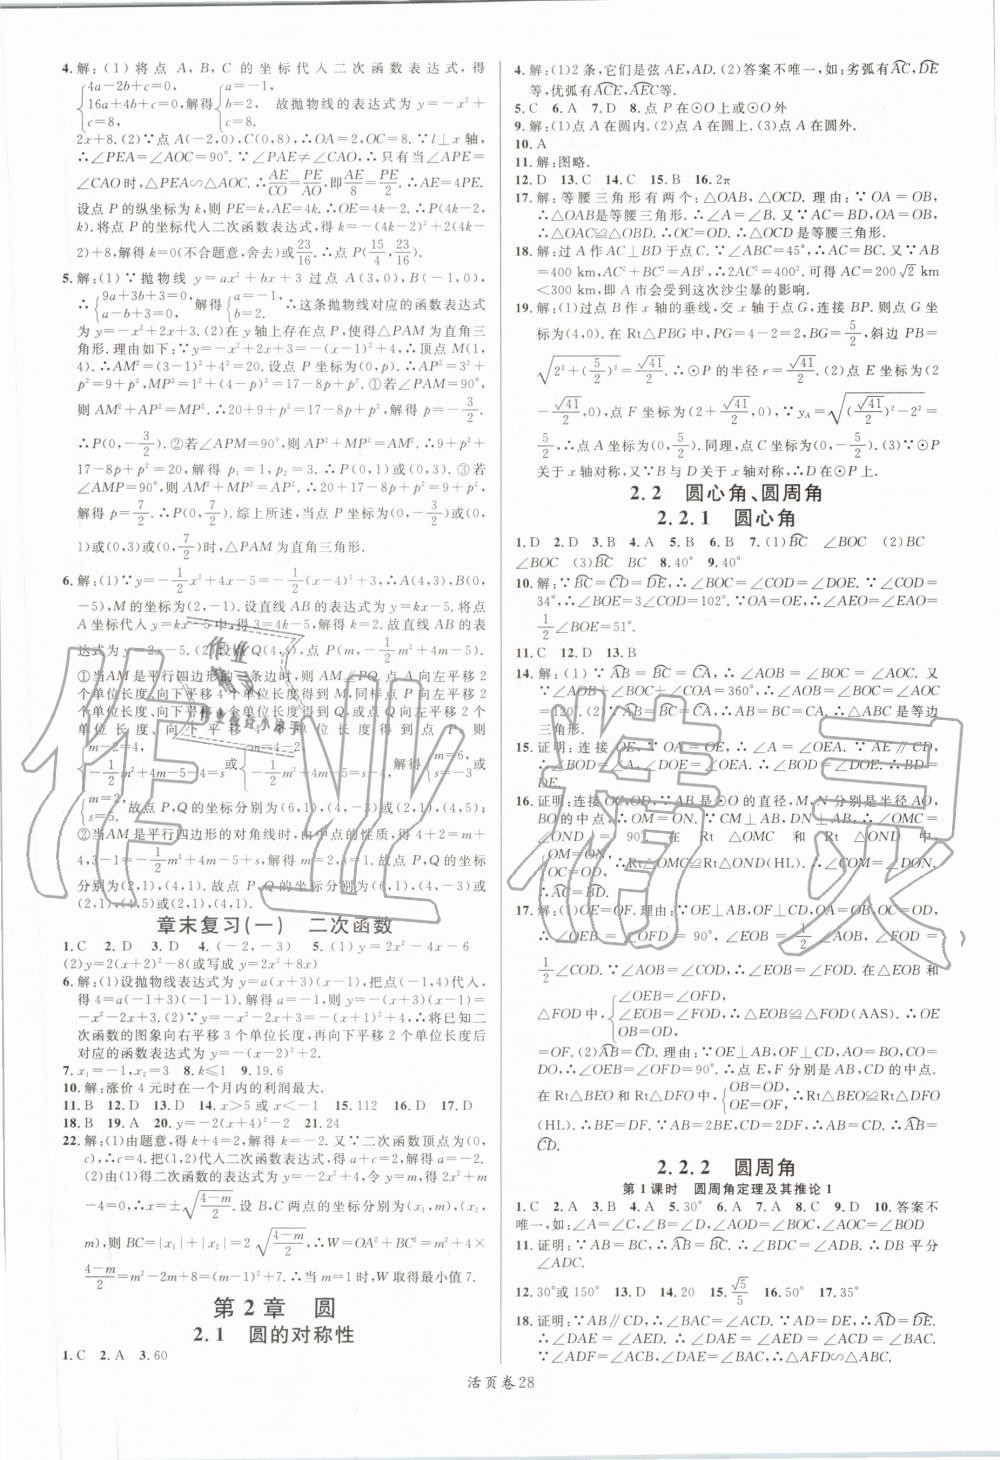 4.解:(1)将点 A,B,C 的坐标代入二次函数表达式,得
{4a-2b+c=0, 16a+4b+c=0, c=8. 解得 {a=-1, b=2, c=8. 故抛物线的表达式为 y=-x²+
2x+8.(2)∵点 A(-2,0),C(0,8),∴OA=2,OC=8.∵l⊥x 轴,
∴∠PEA=∠AOC=90°.∵∠PAE≠∠CAO,∴只有当∠APE=
∠CAO时,△PEA∽△AOC.∴AE/CO=PE/AO,即AE/8=PE/2.∴AE=4PE.
设点 P 的纵坐标为 k,则 PE=k,AE=4k.∴OE=4k-2.∴P(4k-2,
k).将点 P 的坐标代入二次函数表达式,得 k=-(4k-2)²+2(4k-2)
+8.解得 k=0(不合题意,舍去)或23/16.∴点 P(15/4,23/16).
5.解:(1)∵抛物线 y=ax²+bx+3 过点 A(3,0),B(-1,0),
∴{9a+3b+3=0, a-b+3=0. 解得{a=-1, b=2. ∴这条抛物线对应的函数表达式
为 y=-x²+2x+3.(2)在 y 轴上存在点 P,使得△PAM 为直角三
角形.理由如下:∵y=-x²+2x+3=-(x-1)²+4,∴顶点 M(1,
4).∴AM²=(3-1)²+4²=20.设点 P 的坐标为(0,p),∴AP²=3²+
p²=9+p²,MP²=1²+(4-p)²=17-8p+p².①若∠PAM=90°,
则 AM²+AP²=MP².∴20+9+p²=17-8p+p²,解得 p=-3/2.
∴P(0,-3/2).②若∠APM=90°,则 AP²+MP²=AM².∴9+p²+
17-8p+p²=20,解得 p₁=1,p₂=3.∴P(0,1)或(0,3).③若
∠AMP=90°,则 AM²+MP²=AP².∴20+17-8p+p²=9+p²,
解得 p=7/2.∴P(0,7/2).综上所述,当点 P 的坐标为(0,-3/2)或(0,
1)或(0,3)或(0,7/2)时,△PAM为直角三角形.
6.解:(1)∵y=-1/2x²+4x-5=-1/2(x²-8x)-5,∴A(4,3),B(0,
-5),M的坐标为(2,-1).设直线 AB 的表达式为 y=kx-5.将点
A 坐标代入 y=kx-5 中,得 3=4k-5.解得 k=2.故直线 AB 的表
达式为 y=2x-5.(2)设点 Q(4,s),点 P(m,-1/2m²+4m-5).
①当AM是平行四边形的一条边时,则AM∥PQ.∵点 A 向左平移 2
个单位长度,向下平移 4 个单位长度得到 M,同样点 P 向左平移 2 个
单位长度,向下平移 4 个单位长度得到Q,或点 Q 向左平移 2 个单位长
度、向下平移 4 个单位长度得到点 P,则
{m-2=4, -1/2m²+4m-5-4=s 或{m=4-2, -1/2m²+4m-5=s-4. 解得{m=6, s=-3 或
{m=2, s=5. 故点 P,Q 的坐标分别为(6,1),(4,-3)或(2,1),(4,5);
②当AM是平行四边形的对角线时,由中点的性质,得 4+2=m+
4,3-1=-1/2m²+4m-5+s,解得 m=2,s=1.故点 P,Q 的坐标
分别为(2,1),(4,1).故点 P,Q 的坐标分别为(6,1),(4,-3)或
(2,1),(4,5)或(2,1),(4,1).
章末复习(一) 二次函数
1.C 2.D 3.D 4.(-2,-3) 5.(1)y=2x²-4x-6
(2)y=2(x+2)²-8(或写成 y=2x²+8x)
6.解:(1)设抛物线表达式为 y=a(x+3)(x-1),把点(-1,4)代入,
得 4=a(-1+3)(-1-1).解得 a=-1,∴y=-(x+3)(x-1)=
-x²-2x+3.(2)∵y=-x²-2x+3=-(x+1)²+4,∴将已知二
次函数的图象向右平移 3 个单位长度,再向下平移 2 个单位长度后
对应的函数表达式为 y=-(x-2)²+2.
7.x₁=-1,x₂=3 8.k≤1 9.19.6
10.解:涨价 4元时在一个月内的利润最大.
11.B 12.D 13.D 14.x>5 或 x<-1 15.112 16.D 17.D
18.B 19.A 20.y=-2(x+4)²-2 21.24
22.解:(1)由题意,得 k+4=2,解得 k=-2.又∵二次函数顶点为(0,
c),∴c=4.把(1,2)代入二次函数表达式,得 a+c=2,解得 a=-2.
(2)由(1)得二次函数表达式为 y=-2x²+4,令 y=m,得 2x²+m-
4=0.∴x=±√((4-m)/2).设 B,C 两点的坐标分别为(x₁,m),(x₂,
m),则 BC=|x₁|+|x₂|=2√((4-m)/2).∴W=OA²+BC²=m²+4×
(4-m)/2=m²-2m+8=(m-1)²+7.∴当 m=1时,W 取得最小值 7.
第 2 章 圆
2.1 圆的对称性
1.C 2.A 3.60
4.解:(1)2条,它们是弦 AE,AD.(2)答案不唯一,如:劣弧有AC,DE
等,优弧有ACE,AEC等.
5.C 6.A 7.D 8.点 P在⊙O 上或⊙O外
9.解:(1)点 A 在圆内.(2)点 A 在圆上.(3)点 A 在圆外.
10.A
11.解:图略.
12.D 13.C 14.C 15.B 16.2π
17.解:等腰三角形有两个:△OAB,△OCD.理由:∵OA=OB,
∴△OAB是等腰三角形.∴∠A=∠B.又∵AC=BD,OA=OB,
∴△OAC≌△OBD.∴OC=OD.∴△OCD 是等腰三角形.
18.解:过 A 作 AC⊥BD 于点 C.∵∠ABC=45°,∴AC=BC.又∵AB
=400 km,AC²+BC²=AB²,∴2AC²=400²,可得 AC=200√2 km
<300 km,即 A 市会受到这次沙尘暴的影响.
19.解:(1)过点 B 作 x 轴的垂线,交 x轴于点 G,连接 BP.则点 G 坐
标为(4,0).在 Rt△PBG 中,PG=4-2=2,BG=5/2,斜边 PB=
√(2²+(5/2)²)=√41/2.∴⊙P 的半径 r=√41/2.(2)点 E 坐标为(2
-√41/2,0),点 F 坐标为(2+√41/2,0).∵yA=√((√41/2)²-2²)=
5/2,∴点 A 坐标为(0,5/2).同理,点 C 坐标为(0,-5/2).∵⊙P
关于 x 轴对称,又∵B 与 D 关于 x 轴对称,∴D 在⊙P 上.
2.2 圆心角、圆周角
2.2.1 圆心角
1.D 2.D 3.B 4.A 5.B 6.B 7.(1)BC ∠BOC (2)BC
∠BOC (3)BC BC 8.40° 9.40°
10.解:∵BC=CD=DE,∴∠BOC=∠COD=∠DOE.∵∠COD=
34°,∴∠BOE=3∠COD=102°.∵OA=OE,∴∠AEO=∠EAO=
1/2∠BOE=51°.
11.C 12.D 13.B
14.解:(1)∵AB=BC=CA,∴∠AOB=∠BOC=∠AOC.又
∵∠AOB+∠BOC+∠COA=360°,∴∠AOB=∠BOC=∠AOC
=120°.(2)∵AB=BC=CA,∴AB=BC=CA.∴△ABC 是等边
三角形.
15.证明:连接 OE,∵OA=OE,∴∠A=∠OEA.又∵AE∥CD,
∴∠BOD=∠A,∠DOE=∠OEA.∴∠BOD=∠DOE.∴BD
=DE.
16.证明:连接OC,OD,∵AB 是⊙O 的直径,M,N 分别是半径 AO,
BO的中点,∴OM=ON.∵CM⊥AB,DN⊥AB,∴∠OMC=
∠OND=90°.在 Rt△OMC 和 Rt△OND 中,
{OM=ON, OC=OD. ∴Rt△OMC≌Rt△OND(HL).∴∠AOC=∠BOD.
∴AC=BD.
17.解:(1)OE=OF.理由:∵OE⊥AB,OF⊥CD,OA=OB,OC=OD,
∴∠OEB=∠OFD=90°,∠EOB=1/2∠AOB,∠FOD=
1/2∠COD.∵∠AOB=∠COD,∴∠EOB=∠FOD.在△OEB 和
△FOD中,{∠OEB=∠OFD, ∠EOB=∠FOD, OB=OD. ∴△EOB≌△FOD(AAS).∴OE
=OF.(2)AB=CD.理由:∵OE⊥AB,OF⊥CD,AO=BO=CO=
DO,∴∠OEB=∠OFD=90°.∴点 E,F 分别是 AB,CD 的中点.
在 Rt△BEO 和 Rt△DFO 中,{OB=OD, OE=OF. ∴Rt△BEO≌Rt△DFO
(HL).∴BE=DF.∴AB=2BE,CD=2DF.∴AB=CD.∴AB=
CD.
2.2.2 圆周角
第 1 课时 圆周角定理及其推论 1
1.C 2.A 3.B 4.A 5.30° 6.A 7.A 8.C 9.D 10.答案不
唯一,如:∠A=∠C,∠B=∠D,∠AOD=∠BOC,∠AOC=∠BOD
11.证明:∵AB=BC,∴AB=BC.∴∠BDC=∠ADB.∴DB 平分
∠ADC.
12.30°或 150° 13.D 14.A 15.√5/5 16.50° 17.35°
18.证明:∵AB∥CD,∴∠BAC=∠ACD.∵AD=AD,∴∠DAE
=∠DAE=∠AED.∴∠DAE=∠AED.∵∠DAE=∠ABE,
∴∠ADF=∠ACB=∠ACB=∠DAE.∴△AFD∽△CAB.
活页卷28